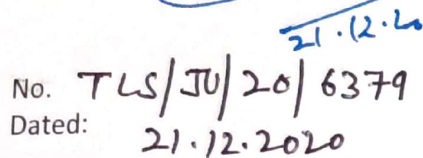 21.12.20
No. TLS/JU/20/6379
Dated: 21.12.2020